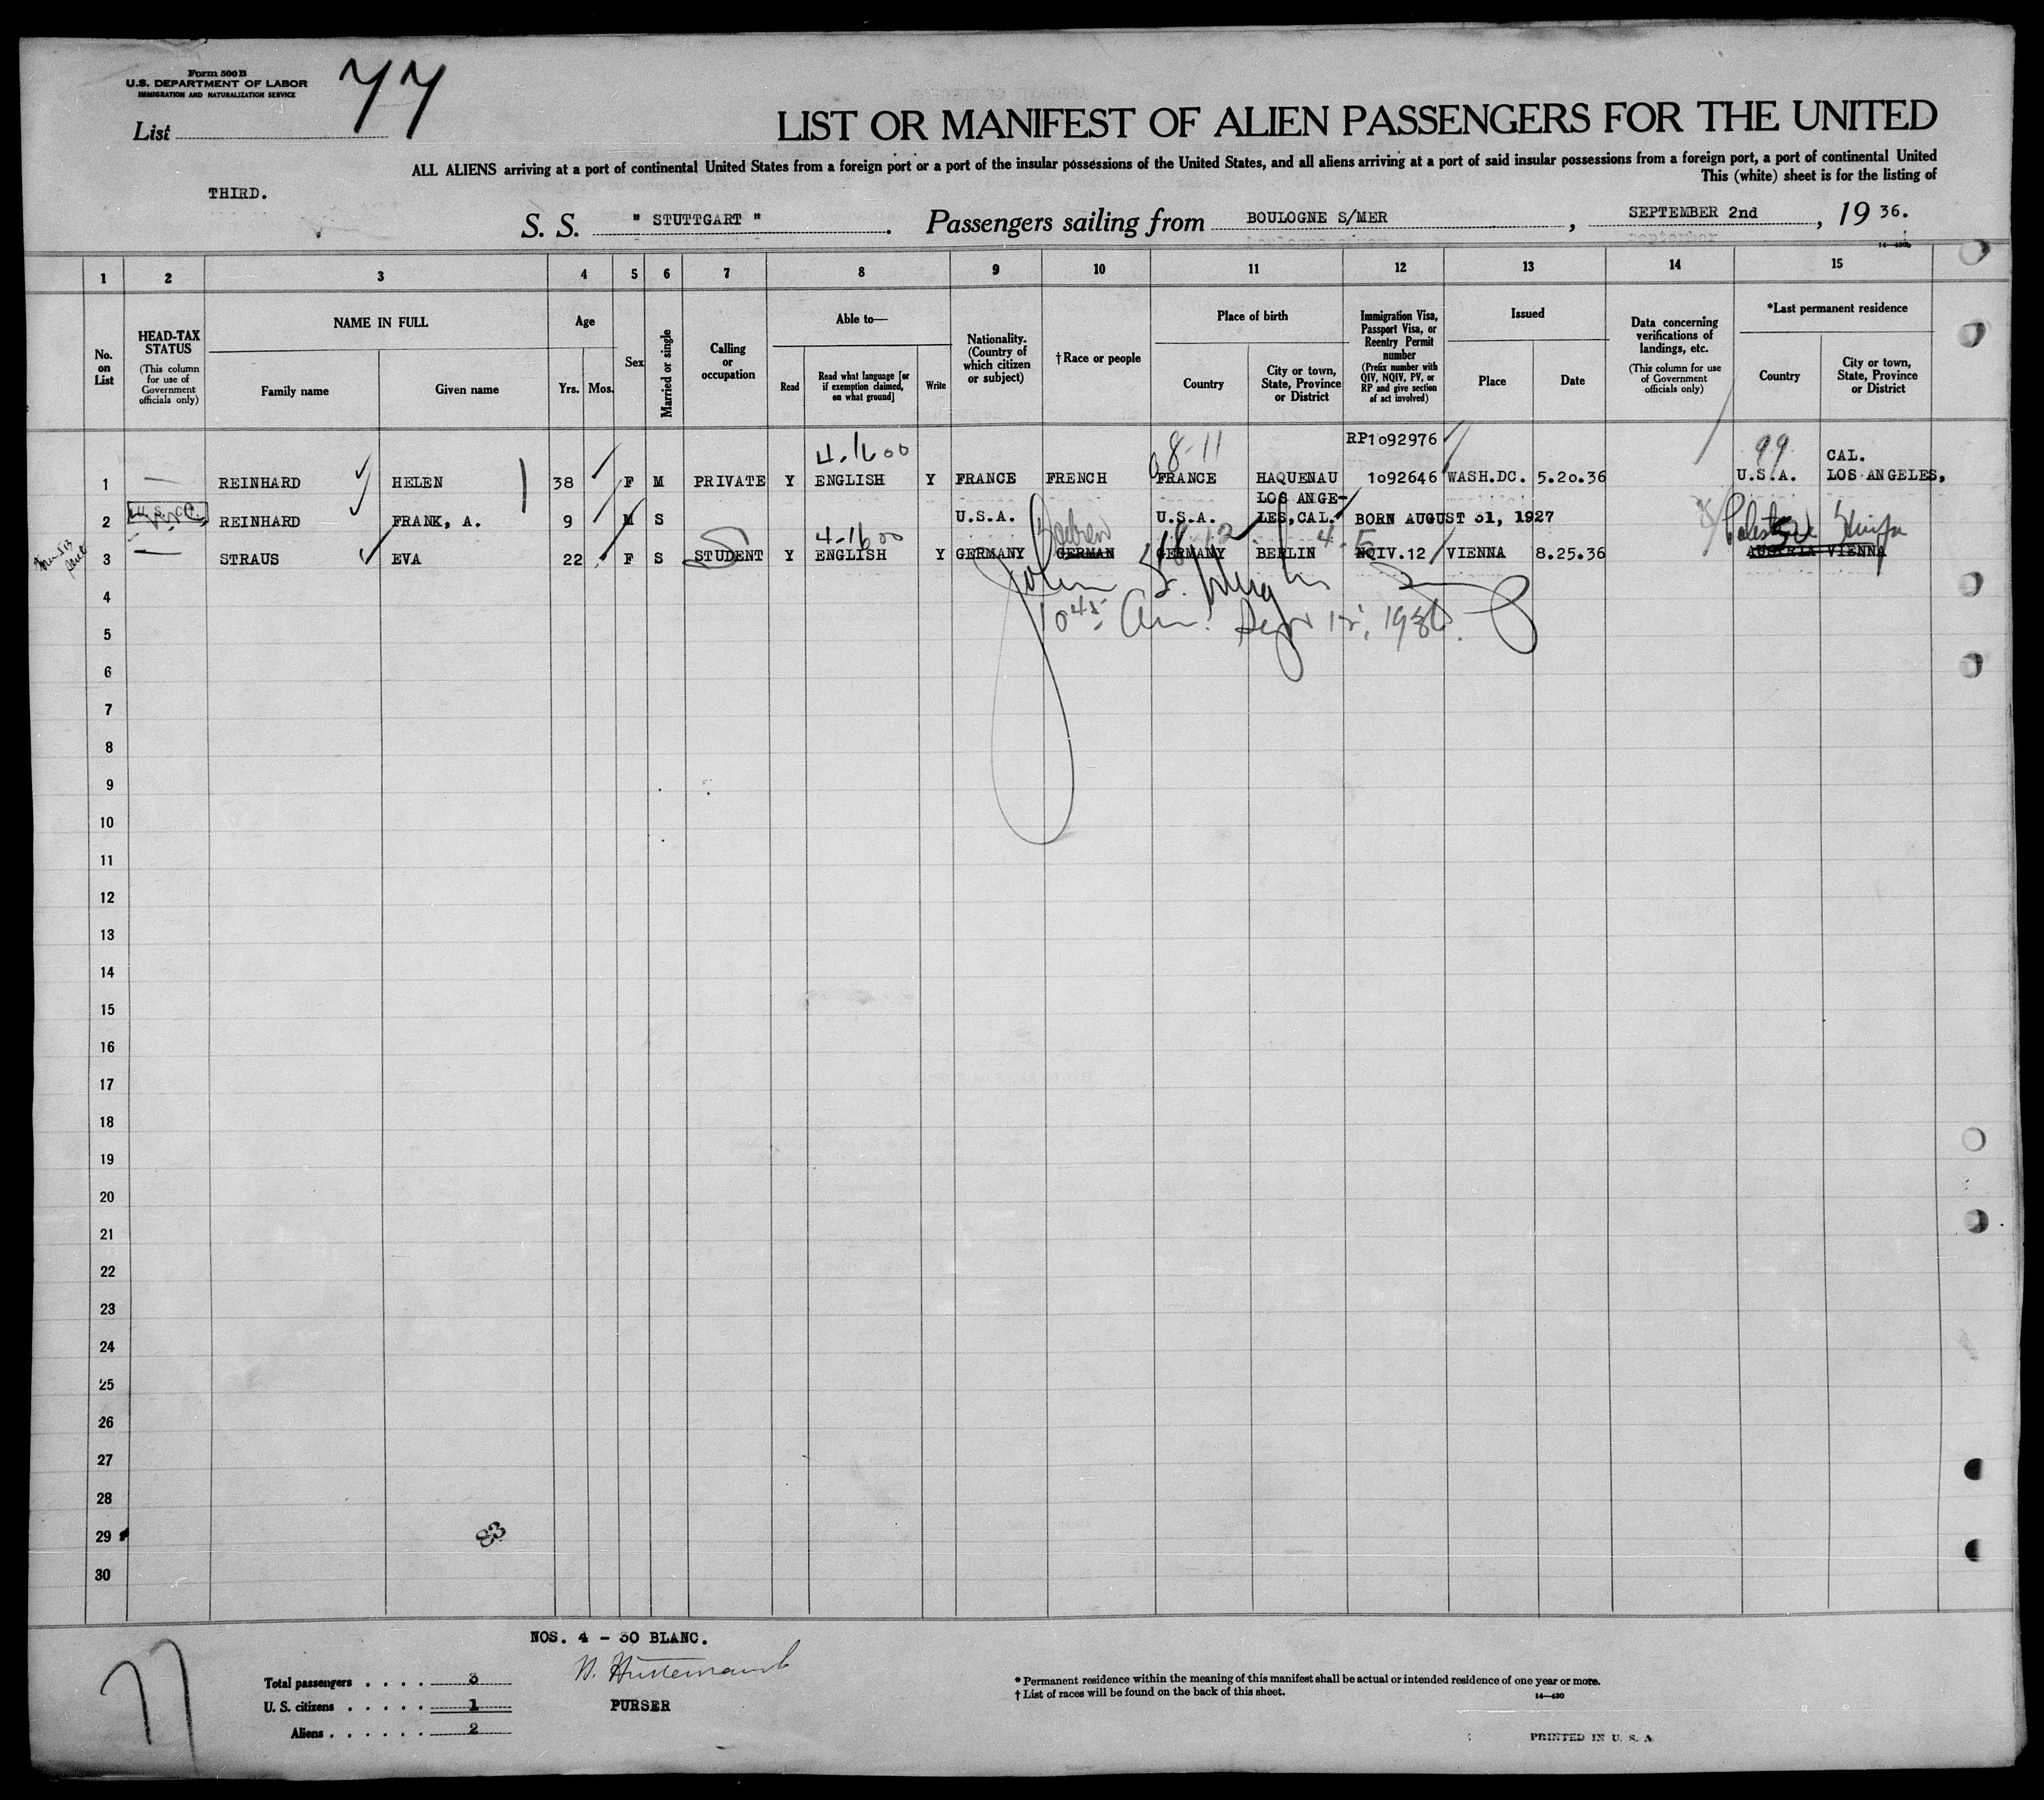 Form 500B
U.S. DEPARTMENT OF LABOR
IMMIGRATION AND NATURALIZATION SERVICE
77
List
LIST OR MANIFEST OF ALIEN PASSENGERS FOR THE UNITED
ALL ALIENS arriving at a port of continental United States from a foreign port or a port of the insular possessions of the United States, and all aliens arriving at a port of said insular possessions from a foreign port, a port of continental United
This (white) sheet is for the listing of
THIRD.
S. S. " STUTTGART ". Passengers sailing from BOULOGNE S/MER, SEPTEMBER 2nd, 19 36.
1 2 3 4 5 6 7 8 9 10 11 12 13 14 15
No. on List
HEAD-TAX STATUS
(This column for use of Government officials only)
NAME IN FULL
Family name
Given name
Age
Yrs. Mos.
Sex
Married or single
Calling or occupation
Able to—
Read
Read what language [or if exemption claimed, on what ground]
Write
Nationality. (Country of which citizen or subject)
†Race or people
Place of birth
Country
City or town, State, Province or District
Immigration Visa, Passport Visa, or Reentry Permit number
(Prefix number with QIV, NQIV, PV, or RP and give section of act involved)
Issued
Place
Date
Data concerning verifications of landings, etc.
(This column for use of Government officials only)
*Last permanent residence
Country
City or town, State, Province or District
4-1600 8-11 RP1092976 99 CAL.
1 REINHARD HELEN 38 F M PRIVATE Y ENGLISH Y FRANCE FRENCH FRANCE HAQUENAU 1092646 WASH.DC. 5.20.36 U.S.A. LOS ANGELES,
LOS ANGE-
2 REINHARD FRANK, A. 9 M S U.S.A. U.S.A. LES, CAL. BORN AUGUST 31, 1927
4-1600 Hebrew
3 STRAUS EVA 22 F S STUDENT Y ENGLISH Y GERMANY GERMAN GERMANY BERLIN NQIV.12 VIENNA 8.25.36 AUSTRIA VIENNA
10 45 Am. Sept 12, 1936.
4
5
6
7
8
9
10
11
12
13
14
15
16
17
18
19
20
21
22
23
24
25
26
27
28
29
30
83
NOS. 4 - 30 BLANC.
PURSER
77
Total passengers . . . . 3
U. S. citizens . . . . . 1
Aliens . . . . . . 2
* Permanent residence within the meaning of this manifest shall be actual or intended residence of one year or more.
† List of races will be found on the back of this sheet.
14—430
PRINTED IN U. S. A